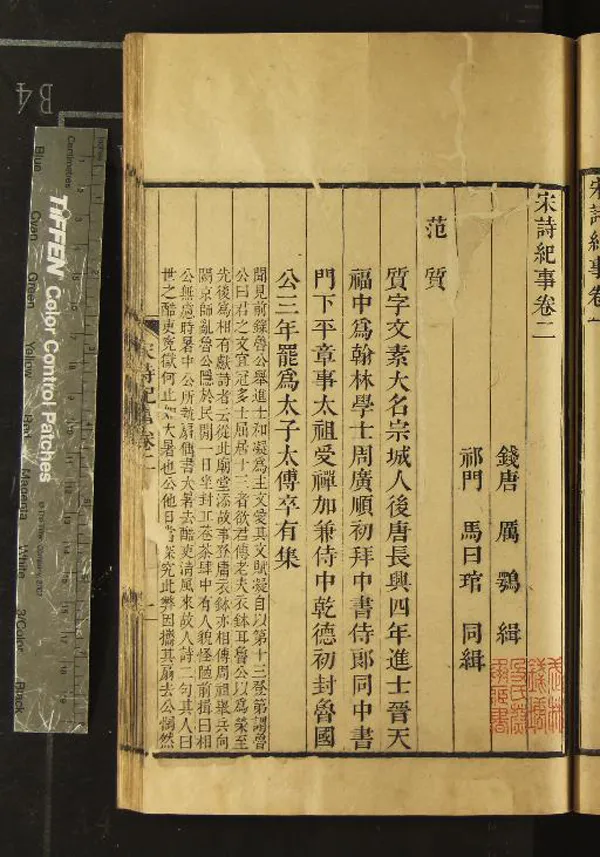 宋詩紀事卷二
錢唐 厲鶚 緝
祁門 馬曰琯 同緝
范質
質字文素大名宗城人後唐長興四年進士晉天
福中爲翰林學士周廣順初拜中書侍郎同中書
門下平章事太祖受禪加兼侍中乾德初封魯國
公三年罷爲太子太傅卒有集
聞見前錄魯公舉進士和凝爲主文愛其文賦凝自以第十三登第謂魯
公曰君之文宜冠多士屈居十三者欲君傳老夫衣鉢耳魯公以爲榮至
先後爲相有獻詩者云從此廟堂添故事登庸衣鉢亦相傳周祖舉兵向
闕京師亂魯公隱於民間一日坐封丘巷茶肆中有人貌怪陋前揖曰相
公無慮時暑中公所執扇偶書大暑去酷吏清風來故人詩二句其人曰
世之酷吏冤獄何止如大暑也公他日當深究此弊因攜其扇去公惘然
宋詩紀事卷二
一
宋詩紀事卷一
B4
TIFFEN Color Control Patches
Centimetres
Inches
Blue
Cyan
Green
Yellow
Red
Magenta
White
3/Color
Black